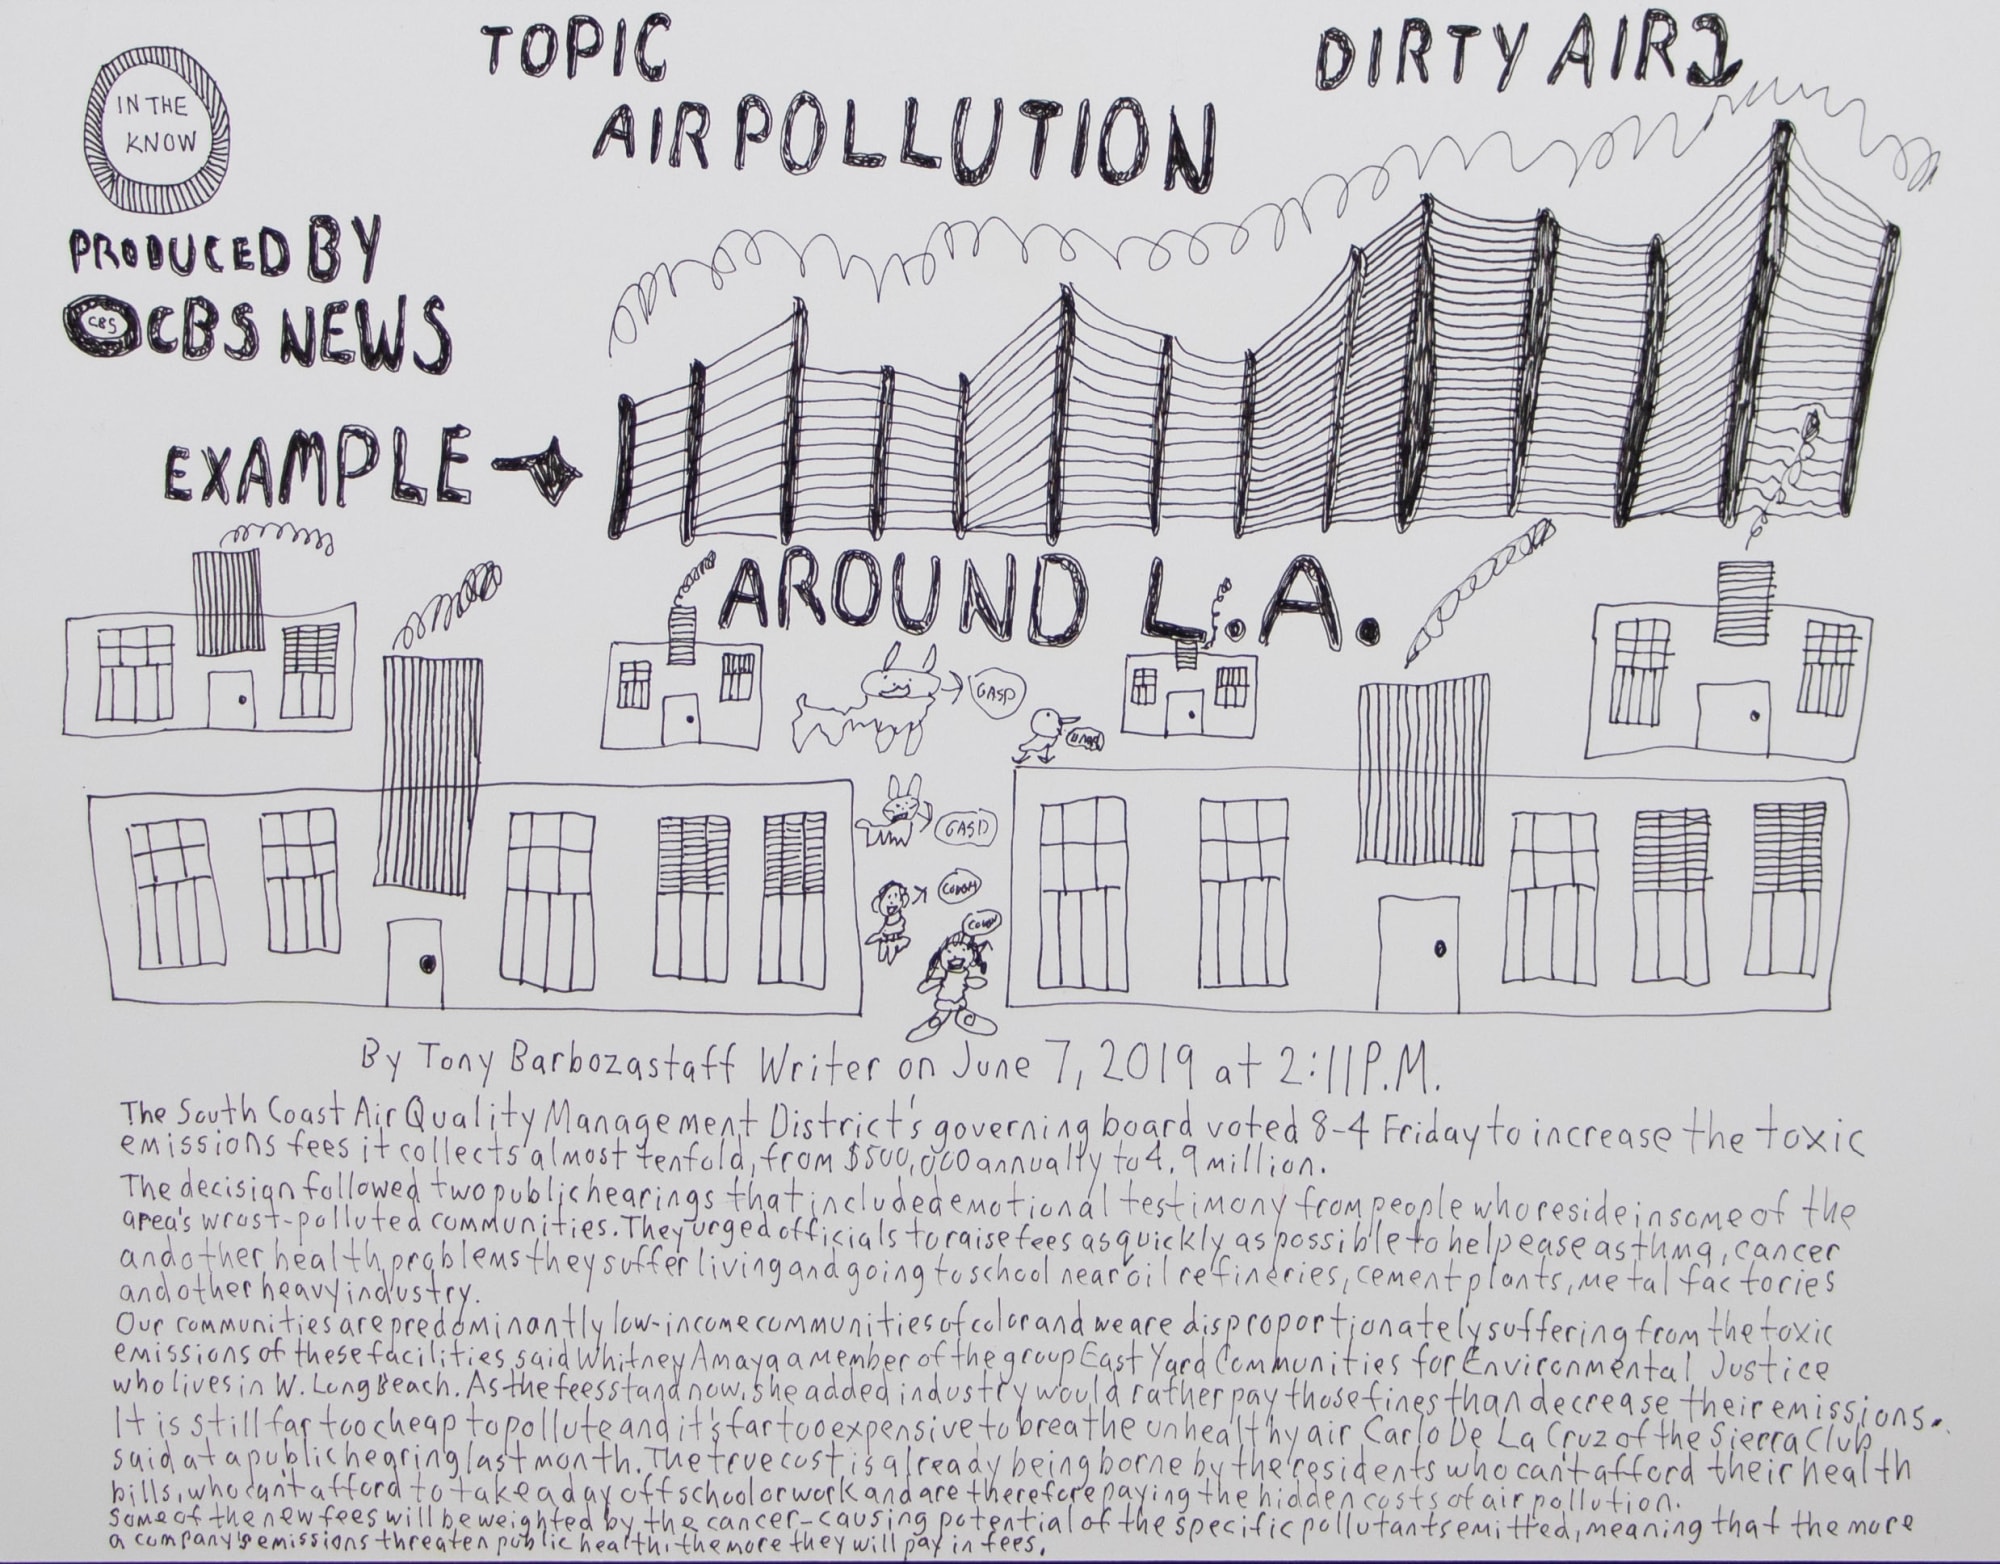 TOPIC
DIRTY AIR
IN THE
KNOW
AIR POLLUTION
PRODUCED BY
CBS
CBS NEWS
EXAMPLE
AROUND L.A.
GASP
GASP
COUGH
COUGH
By Tony Barbozastaff Writer on June 7, 2019 at 2:11 P.M.
The South Coast Air Quality Management District's governing board voted 8-4 Friday to increase the toxic
emissions fees it collects almost tenfold, from $500,000 annually to 4.9 million.
The decision followed two public hearings that included emotional testimony from people who reside in some of the
area's wrost-polluted communities. They urged officials to raise fees as quickly as possible to help ease asthma, cancer
and other health problems they suffer living and going to school near oil refineries, cement plants, metal factories
and other heavy industry.
Our communities are predominantly low-income communities of color and we are disproportionately suffering from the toxic
emissions of these facilities, said Whitney Amaya a member of the group East Yard Communities for Environmental Justice
who lives in W. Long Beach. As the fees stand now, she added industry would rather pay those fines than decrease their emissions.
It is still far too cheap to pollute and it's far too expensive to breathe unhealthy air Carlo De La Cruz of the Sierra Club
said at a public hearing last month. The true cost is already being borne by the residents who can't afford their health
bills, who can't afford to take a day off school or work and are therefore paying the hidden costs of air pollution.
Some of the new fees will be weighted by the cancer-causing potential of the specific pollutants emitted, meaning that the more
a company's emissions threaten public health, the more they will pay in fees.